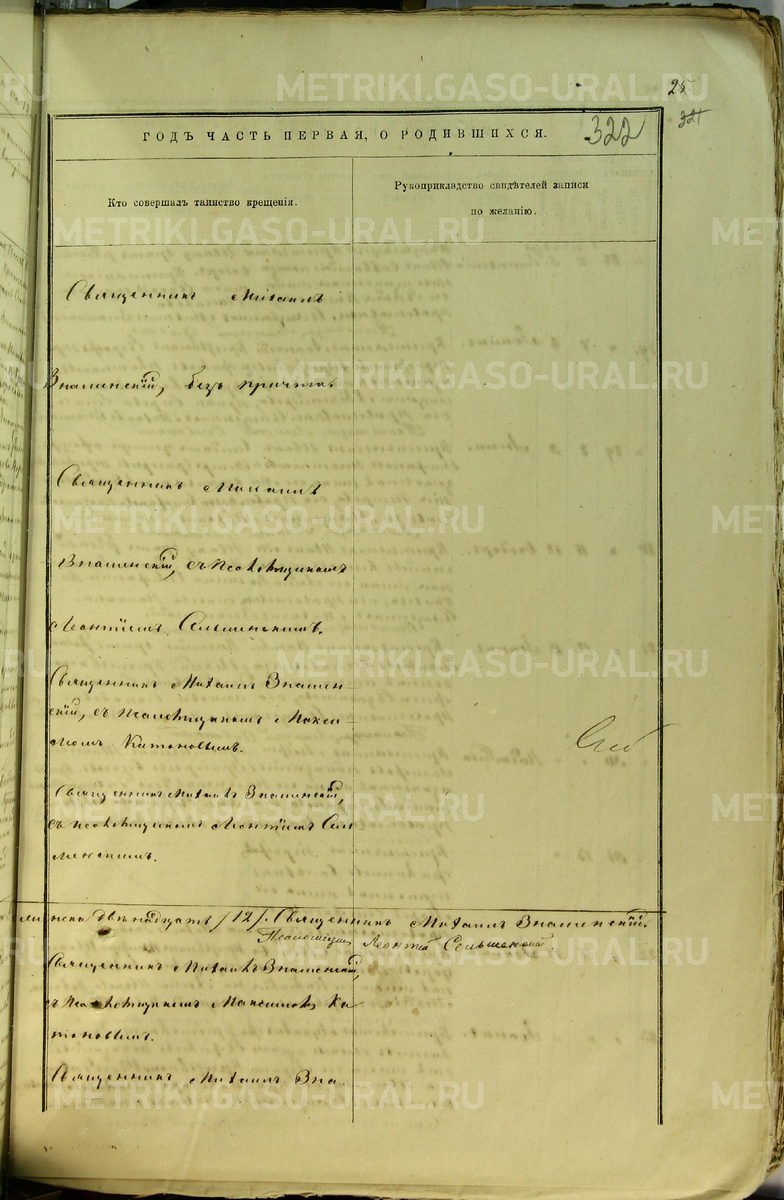 25
321
322
ГОДЪ ЧАСТЬ ПЕРВАЯ, О РОДИВШИХСЯ.
Кто совершалъ таинство крещенія.
Рукоприкладство свидѣтелей записи
по желанію.
Священникъ Михаилъ
Знаменскій, безъ причта.
Священникъ Михаилъ
Знаменскій, съ Псаломщикомъ
Леонтіемъ
Священникъ Михаилъ Знамен-
скій, съ Псаломщикомъ Макси-
момъ Катановымъ.
Священникъ Михаилъ Знаменскій,
съ псаломщикомъ Леонтіемъ
женска двѣнадцать /12/. Священникъ Михаилъ Знаменскій.
Псаломщикъ Леонтій
Священникъ Михаилъ Знаменскій,
съ Псаломщикомъ Максимомъ Ка
тановымъ.
Священникъ Михаилъ Зна.
METRIKI.GASO-URAL.RU